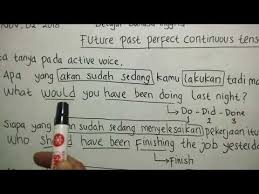 NOV, 02 2018 Belajar Bahasa Inggris
Future past perfect continuous tens
ta tanya pada active voice.
Apa yang akan sudah sedang kamu (akukan) tadi ma
What would you have been doing last night?
Do - Did - Done
1 2 3
Siapa yang akan sudah sedang menyelesaikan pekerjaan
Who should have been Finishing the job yesterda
Finish